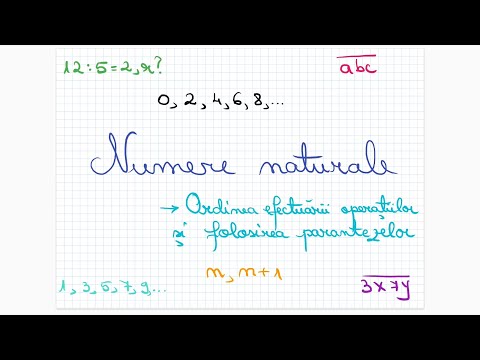 12:5=2, r?
a̅b̅c̅
0, 2, 4, 6, 8, ...
Numere naturale
→ Ordinea efectuării operațiilor
și folosirea parantezelor
n, n+1
1, 3, 5, 7, 9, ...
3̅x̅7̅y̅